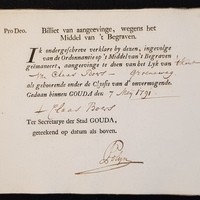 Pro Deo. Billet van aangeevinge, wegens het
Middel van 't Begraven.
Ik ondergeschreve verklare by dezen, ingevolge
van de Ordonnantie op 't Middel van 't Begraven
geëmaneert, aangeevinge te doen van het Lyk van
Claas Boers
als gehoorende onder de Classis van d' onvermogende.
Gedaan binnen GOUDA den 7 May 1791
Claas Boers
Ter Secretarye der Stad GOUDA,
geteekend op datum als boven.